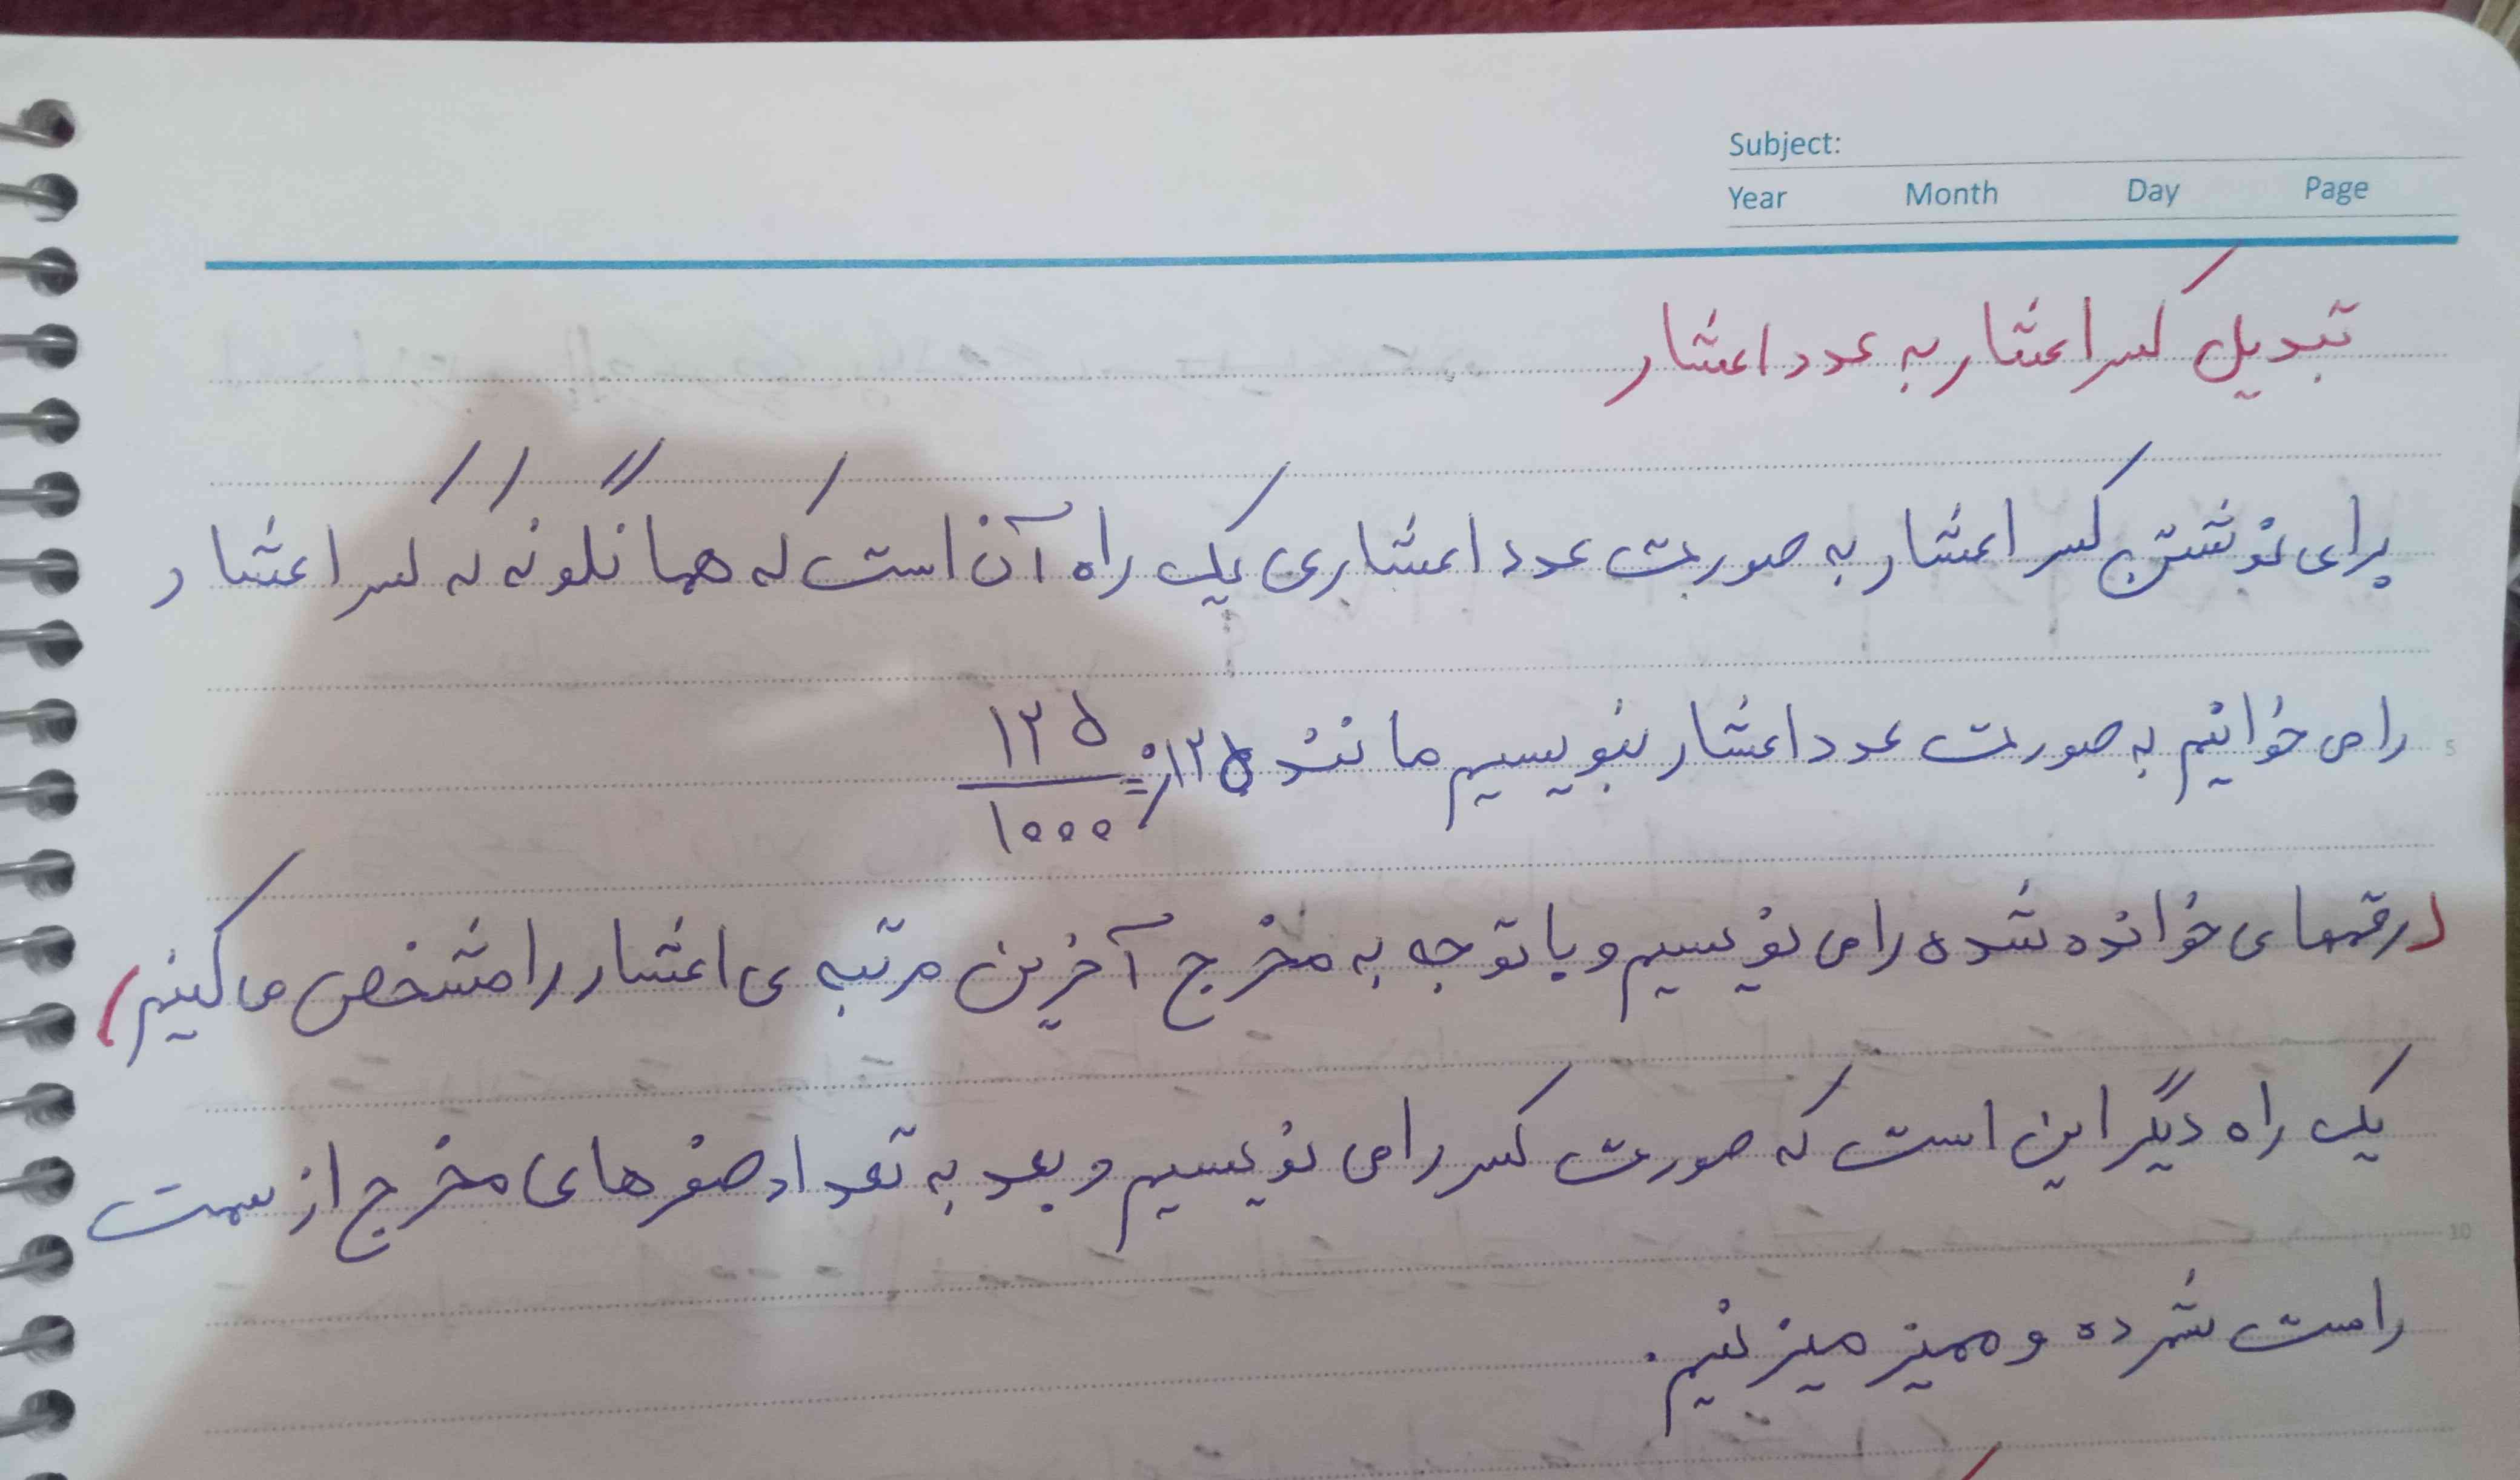 Subject:
Year Month Day Page
تبدیل کسر اعشار به عدد اعشار
برای نوشتن کسر اعشار به صورت عدد اعشاری یک راه آن است که همانگونه که کسر اعشار
را می خوانیم به صورت عدد اعشار بنویسیم مانند ۰٫۱۲۵ = ۱۲۵/۱۰۰۰
5
(رقمهای خوانده شده را می نویسیم و با توجه به مخرج آخرین مرتبه ی اعشار را مشخص می کنیم)
یک راه دیگر این است که صورت کسر را می نویسیم و بعد به تعداد صفرهای مخرج از سمت
10
راست شمرده و ممیز میزنیم.